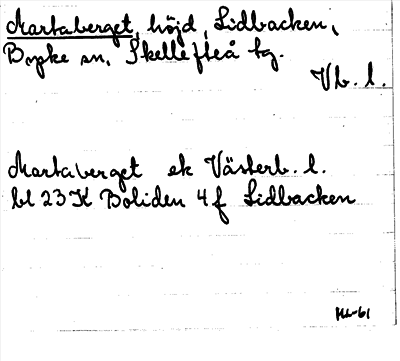 Martaberget, höjd, Lidbacken,
sn, Skellefteå tg.
Vb. l.
Martaberget ek Västerb. l.
bl 23 K Boliden 4 f Lidbacken